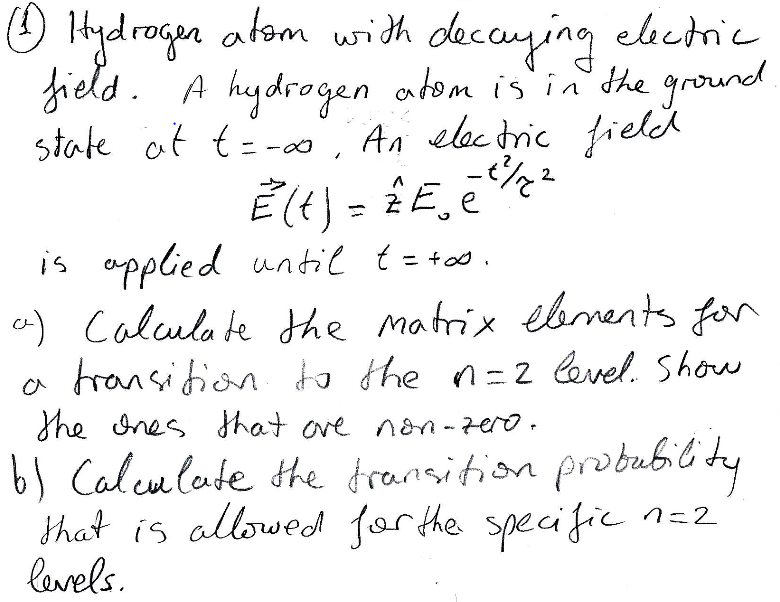 ① Hydrogen atom with decaying electric
field. A hydrogen atom is in the ground
state at t=-∞, An electric field
E⃗(t) = ẑ E₀ e^{-t²/τ²}
is applied until t=+∞.
a) Calculate the matrix elements for
a transition to the n=2 level. Show
the ones that are non-zero.
b) Calculate the transition probability
that is allowed for the specific n=2
levels.